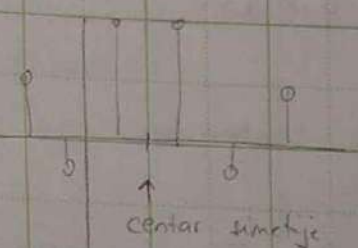 centar simetrije